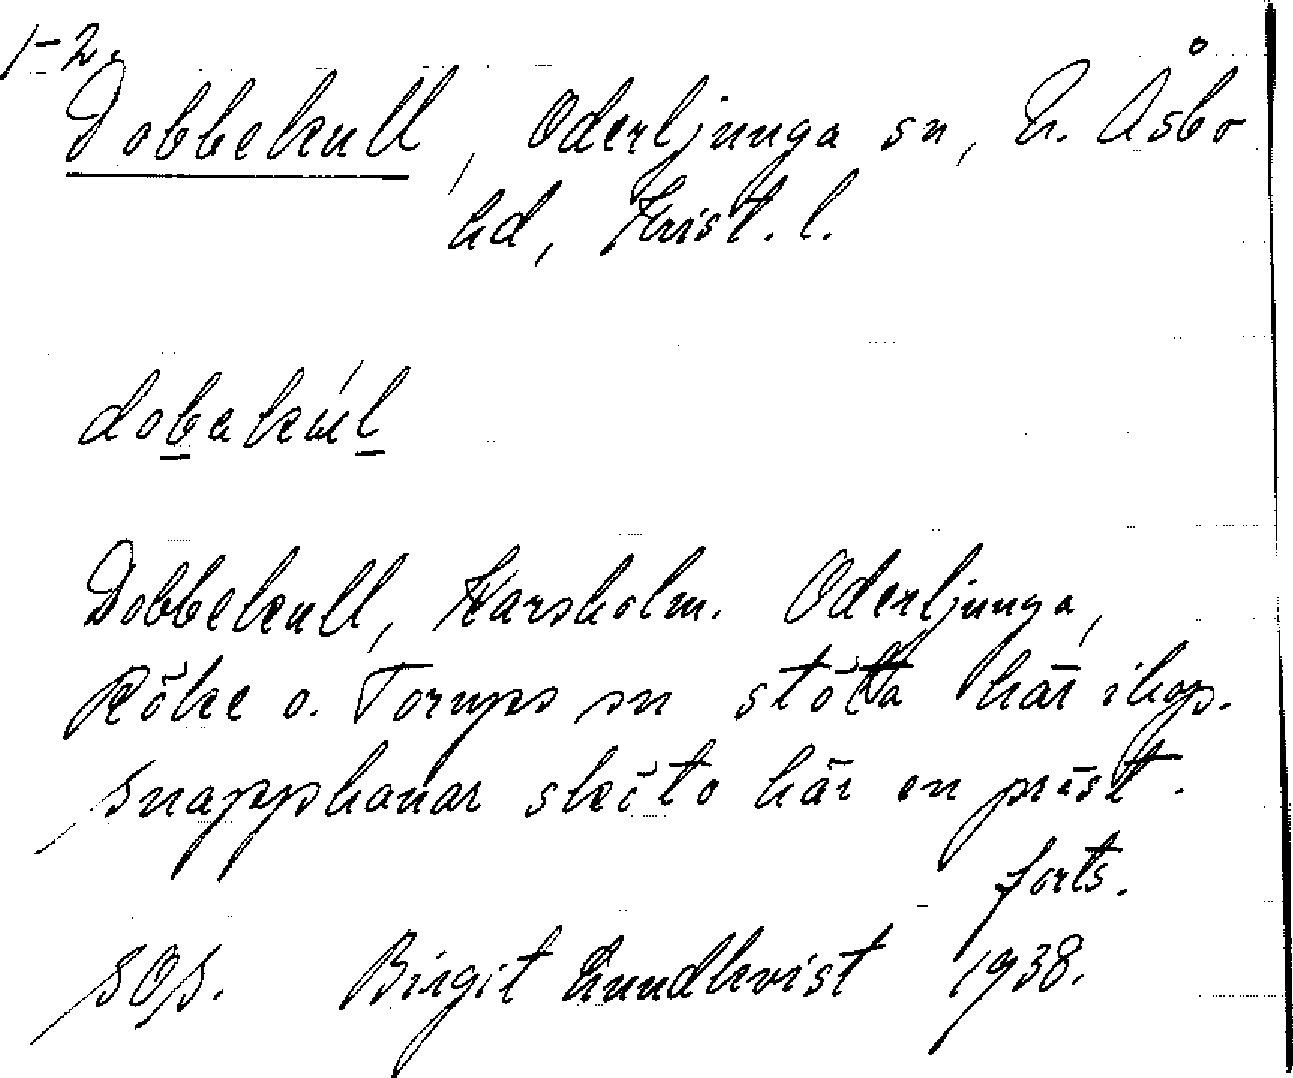 1-2.
Dobbekull, Oderljunga sn, N. Åsbo
hd, Krist. l.
dobakúl
Dobbekull, Karsholm. Oderljunga,
Röke o. Torups sn stöta här ihop.
Snapphanar sköto här en präst.
forts.
SOS. Birgit Lundkvist 1938.